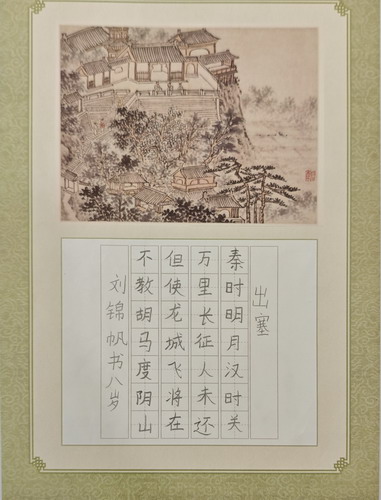 出塞
秦时明月汉时关
万里长征人未还
但使龙城飞将在
不教胡马度阴山
刘锦帆书八岁